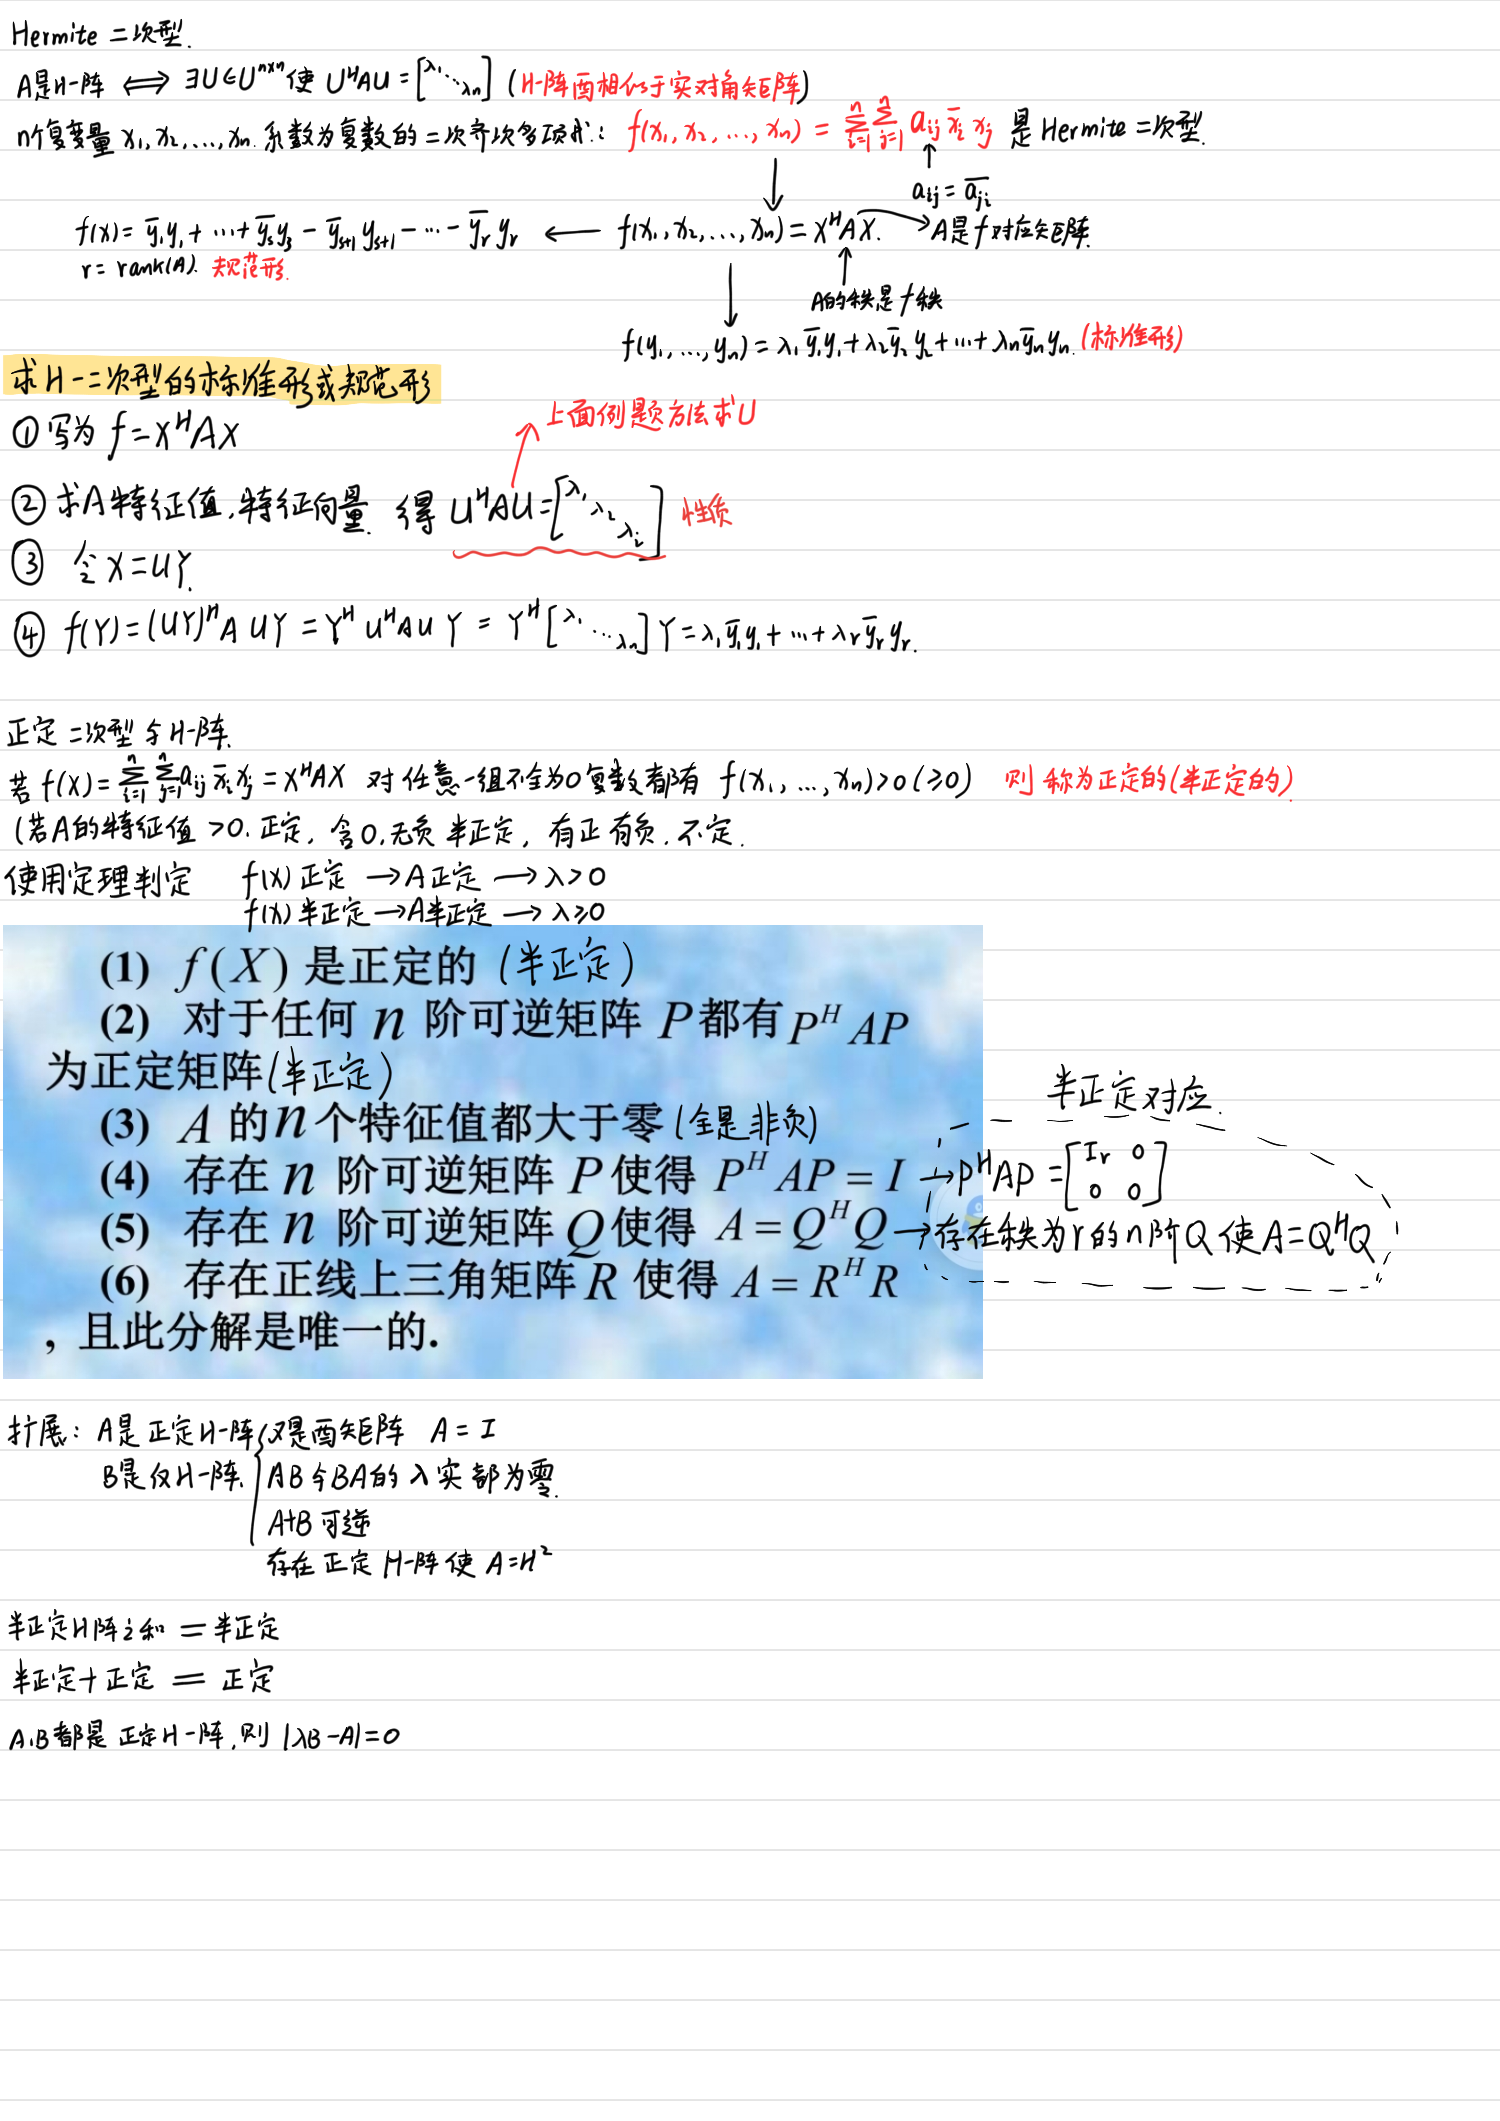 Hermite 二次型.
A是H-阵 ⟺ ∃U∈Uⁿˣⁿ使 UᴴAU = [λ₁ ⋱ λₙ] (H-阵酉相似于实对角矩阵)
n个复变量 x₁, x₂, ..., xₙ. 系数为复数的二次齐次多项式: f(x₁, x₂, ..., xₙ) = ∑ⁿᵢ₌₁ ∑ⁿⱼ₌₁ aᵢⱼ x̄ᵢ xⱼ 是 Hermite 二次型.
↓ ↑ aᵢⱼ = \overline{aⱼᵢ}
f(x) = ȳ₁y₁ + ⋯ + ȳₛyₛ − ȳₛ₊₁yₛ₊₁ − ⋯ − ȳᵣyᵣ ← f(x₁, x₂, ..., xₙ) = XᴴAX. → A是f对应矩阵.
r = rank(A). 规范形.
↓ ↑ A的秩是f秩
f(y₁, ..., yₙ) = λ₁ȳ₁y₁ + λ₂ȳ₂y₂ + ⋯ + λₙȳₙyₙ. (标准形)
求H-二次型的标准形或规范形
① 写为 f = XᴴAX
上面例题方法求U
② 求A特征值,特征向量. 得 UᴴAU = [λ₁ λ₂ λᵢ] 性质
③ 令X=UY.
④ f(Y) = (UY)ᴴA UY = Yᴴ UᴴAU Y = Yᴴ[λ₁ ⋱ λₙ]Y = λ₁ȳ₁y₁ + ⋯ + λᵣȳᵣyᵣ.
正定二次型与H-阵.
若 f(x) = ∑ⁿᵢ₌₁ ∑ⁿⱼ₌₁ aᵢⱼ x̄ᵢ xⱼ = XᴴAX 对任意一组不全为0复数都有 f(x₁, ..., xₙ)>0 (≥0) 则称为正定的(半正定的)
(若A的特征值 >0. 正定, 含0,无负 半正定, 有正有负. 不定.
使用定理判定 f(x) 正定 → A正定 → λ>0
f(x) 半正定 → A半正定 → λ≥0
(1) f(X) 是正定的 (半正定)
(2) 对于任何 n 阶可逆矩阵 P都有 Pᴴ AP
为正定矩阵(半正定)
(3) A 的n个特征值都大于零 (全是非负)
半正定对应.
(4) 存在 n 阶可逆矩阵 P 使得 Pᴴ AP = I → PᴴAP = [Iᵣ 0 0 0]
(5) 存在 n 阶可逆矩阵 Q使得 A = QᴴQ → 存在秩为r的n阶Q 使A=QᴴQ
(6) 存在正线上三角矩阵R 使得 A = RᴴR
, 且此分解是唯一的.
扩展: A是正定H-阵 { 又是酉矩阵 A = I
B是反H-阵. AB与BA的 λ 实部为零.
A+B 可逆
存在正定H-阵使 A=H²
半正定H阵之和 = 半正定
半正定+正定 = 正定
A,B都是正定H-阵,则 |λB-A|=0